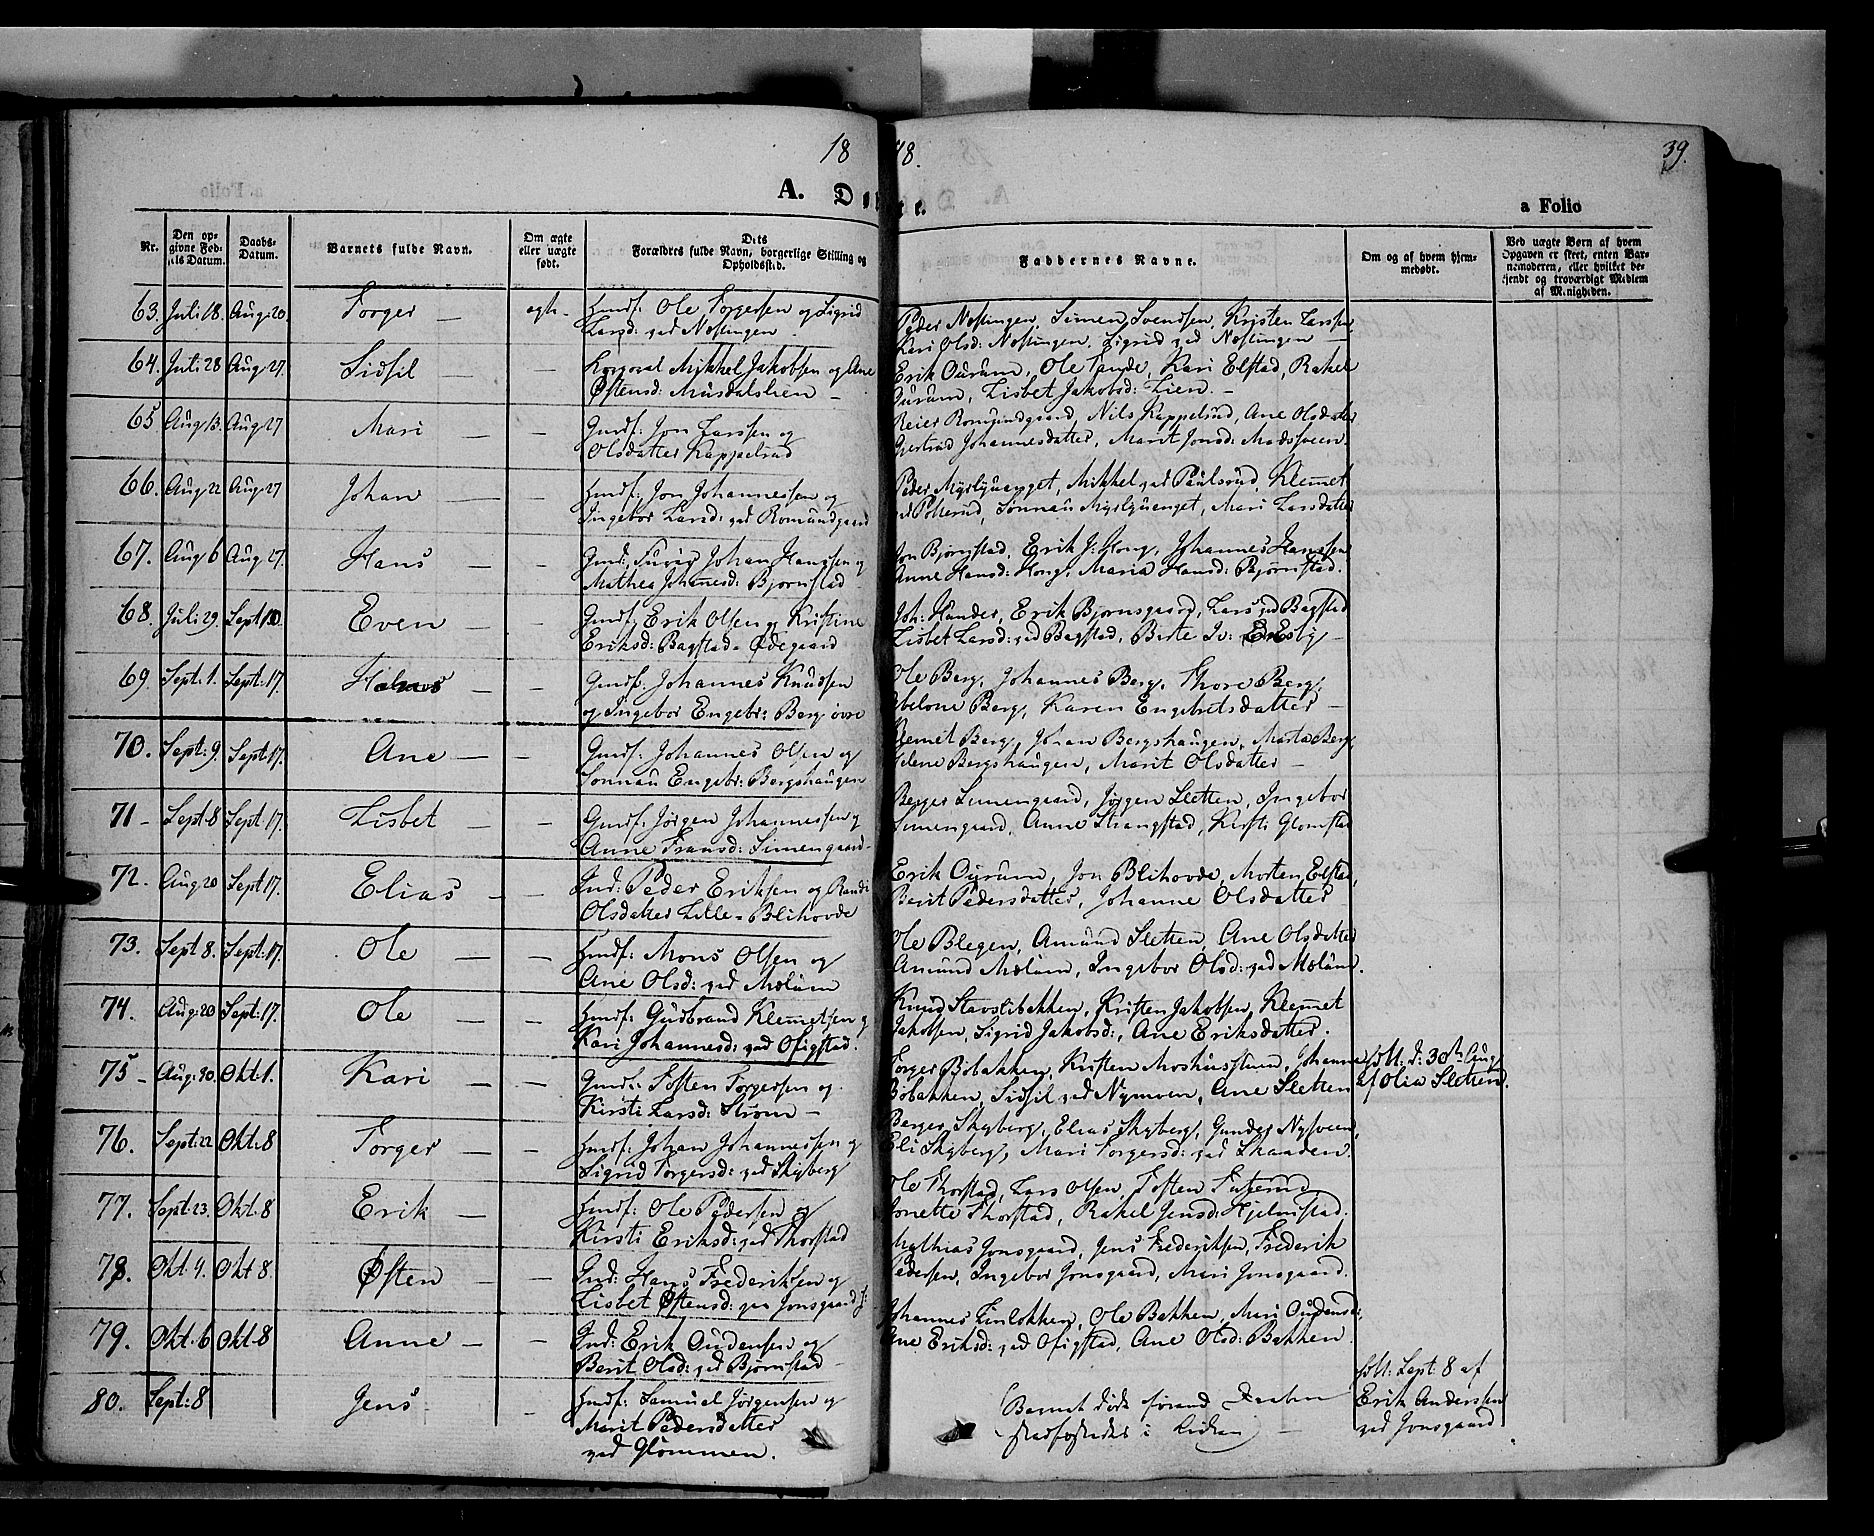 1848.
39.
A. Døbte.
a Folio
Nr.
Den opgivne Fødsels Datum.
Daabs-Datum.
Barnets fulde Navn.
Om ægte eller uægte født.
Dets Forældres fulde Navn, borgerlige Stilling og Opholdssted.
Faddernes Navne.
Om og af hvem hjemmedøbt.
Ved uægte Børn af hvem Opgaven er skeet, enten Barnemoderen, eller hvilket bekjendt og troværdigt Medlem af Menigheden.
63. Juli 18. Aug: 20. Torger — ægte. Huusf: Ole Torgersen og Sigrid
Larsd: paa Nøstingen
Peder Nøstingen, Simen Svendsen, Kristen Larssen
Kari Olsd: Nøstingen, Sigrid paa Nøstingen —
64. Juli 28 Aug: 27. Sidsil — — Korporal Mikkel Jakobsen og Ane
Østensd: Musdalslien —
Erik Ourum, Ole Tande, Kari Elstad, Rakel
Ourum, Lisbet Jakobsd: Lien. —
65. Aug 13. Aug: 27 Mari — — Gmdf: Jon Larssen og
Olsdatter Kappelrud
Reier Romundgaard, Nils Kappelrud, Ane Olsdatter
Gjertrud Johannesdatter, Marit Jonsd: Madssveen.
66. Aug: 22 Aug: 27 Johan — — Huusf: Jon Johannessen og
Ingebor Larsd: paa Romundgaard
Peder Myrlyuenget, Mikkel paa Paulsrud, Klemet
paa Polterud, Sønnau Myrlyuenget, Mari Larsdatter
67. Aug: 6 Aug: 27. Hans — — Johan Hanssen og
Mathea Johanesd: Bjørnstad
Jon Bjørnstad, Erik J: Hong, Johannes Hanssen
Anne Hansd: Hong, Maria Hansd: Bjørnstad.
68. Juli 29. Sept 10. Even — — Gmdf: Erik Olsen og Kristine
Eriksd: Bagstad-Ødegaard
Joh: Hunder, Erik Bjørnsgaard, Lars paa Bagstad
Lisbet Larsd: paa Bagstad, Berte
69. Sept: 1. Sept: 17. — — Gmdf: Johannes Knudsen
og Ingebor Engebr: Berg øvre
Ole Berg, Johannes Berg, Thore Berg,
Abelone Berg, Karen Engebretsdatter —
70. Sept: 9. Sept: 17. Ane — — Gmdf: Johannes Olsen og
Sønnau Engebr: Bergshaugen
Klemet Berg, Johan Bergshaugen, Marta Berg
Helene Bergshaugen, Marit Olsdatter —
71 — Sept: 8 Sept: 17. Lisbet — — Gmdf: Jørgen Johannessen og
Anne Fransd: Simengaard —
Berger Simengaard, Jørgen Sletten, Ingebor
Simengaard, Anne Strangstad, Kirsti Glomstad
72. Aug: 20 Sept: 17. Elias — — Ind: Peder Eriksen og Randi
Olsdatter Lille-Blihovde
Erik Ourum, Jon Blihovde, Morten Elstad,
Berit Pedersdatter, Johanne Olsdatter
73. Sept 8. Sept: 17. Ole — — Huusf: Mons Olsen og
Ane Olsd: paa Mælum
Ole Blegen, Amund Sletten, Ane Olsdatter
Amund Mælum, Ingebor Olsd: paa Mælum.
74. Aug: 20 Sept: 17. Ole — — Huusf: Gudbrand Klemetsen og
Kari Johannesd: paa Ofigstad.
Knud Stavslibakken, Kristen Jakobsen, Klemet
Jakobsen, Sigrid Jakobsd:, Ane Eriksdatter.
75 — Aug: 30. Okt: 1. Kari — — Gmdf: Tosten Torgersen og
Kirsti Larsd: Strøm —
Torger Bøbakken, Kristen Moshusstuen, Johanne
Bøbakken, Sidsil paa Nymoen, Ane Sletten
d: 30te Aug
af Olia Sletten.
76. Sept: 22 Okt: 8 Torger — — Huusf: Johan Johannessen og
Sigrid Torgersd: paa Skyberg
Berger Skyberg, Elias Skyberg, Gunder Nysveen,
Eli Skyberg, Mari Torgersd: paa Skaaden.
77. Sept: 23. Okt: 8 Erik — Huusf: Ole Pedersen og
Kirsti Eriksd: paa Thorstad
Ole Thorstad, Lars Olsen, Tosten
Jonette Thorstad, Rakel Jensd: Hjelmstad.
78. Okt. 4. Okt 8. Østen — — Ind: Hans Frederiksen og
Lisbet Østensd: paa Jonsgaard
Mathias Jonsgaard, Jens Frederiksen, Frederik
Pedersen, Ingebor Jonsgaard, Mari Jonsgaard.
79. Okt: 6 Okt: 8 Anne — — Ind: Erik Oudensen og
Berit Olsd: paa Bjørnstad —
Johannes Linløkken, Ole Bakken, Mari Oudensd:
Ane Eriksd: paa Ofigstad, Ane Olsd: Bakken
80. Sept: 8 Jens — Huusf: Samuel Jørgensen og
Marit Pedersdatter
paa Glømmen.
Barnet døde førend Daaben
stadfæstedes i Kirken —
Sept: 8 af
Erik Anderssen
paa Jonsgaard